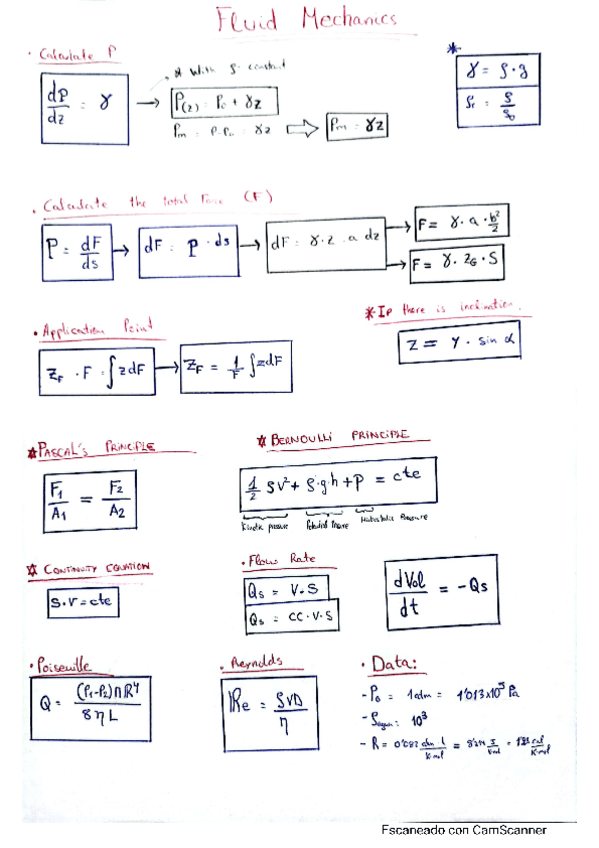 Fluid Mechanics
· Calculate P
* With ρ constant
dP/dz = γ → P(z) = P₀ + γz
Pm = P-P₀ = γz ⇒ Pm = γz
*
γ = ρ·g
ρr = ρ/ρ₀
· Calculate the total Force (F)
P = dF/ds → dF = P · ds → dF = γ·z·a dz → F = γ·a·b²/2
→ F = γ·zG·S
· Application Point
ZF · F = ∫zdF → ZF = 1/F ∫zdF
* IP there is inclination.
Z = Y · sin α
* PASCAL'S PRINCIPLE
F₁/A₁ = F₂/A₂
* BERNOULLI PRINCIPLE
1/2 ρv² + ρ·g·h + P = cte
Kinetic pressure Hidrostatic Pressure
* CONTINUITY EQUATION
S·V = cte
· Flow Rate
Qs = V·S
Qs = CC·V·S
dVol/dt = -Qs
· Poiseuille
Q = (P₁-P₂)πR⁴/8ηL
· Reynolds
Re = ρvD/η
· Data:
- P₀ = 1atm = 1'013x10⁵ Pa
- ρagua = 10³
- R = 0'082 atm l/K·mol = J/K·mol = cal/K·mol
Escaneado con CamScanner